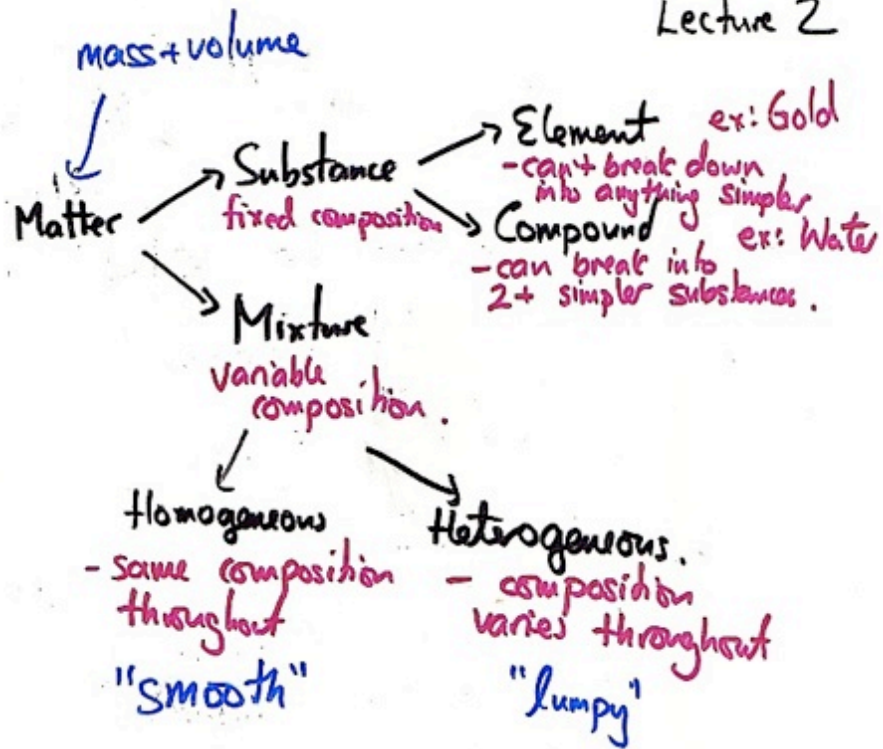 Lecture 2
mass + volume
Matter
Substance
fixed composition
Element ex: Gold
- can't break down
into anything simpler
Compound ex: Water
- can break into
2+ simpler substances.
Mixture
variable
composition.
Homogeneous
- same composition
throughout
"smooth"
Heterogeneous.
- composition
varies throughout
"lumpy"